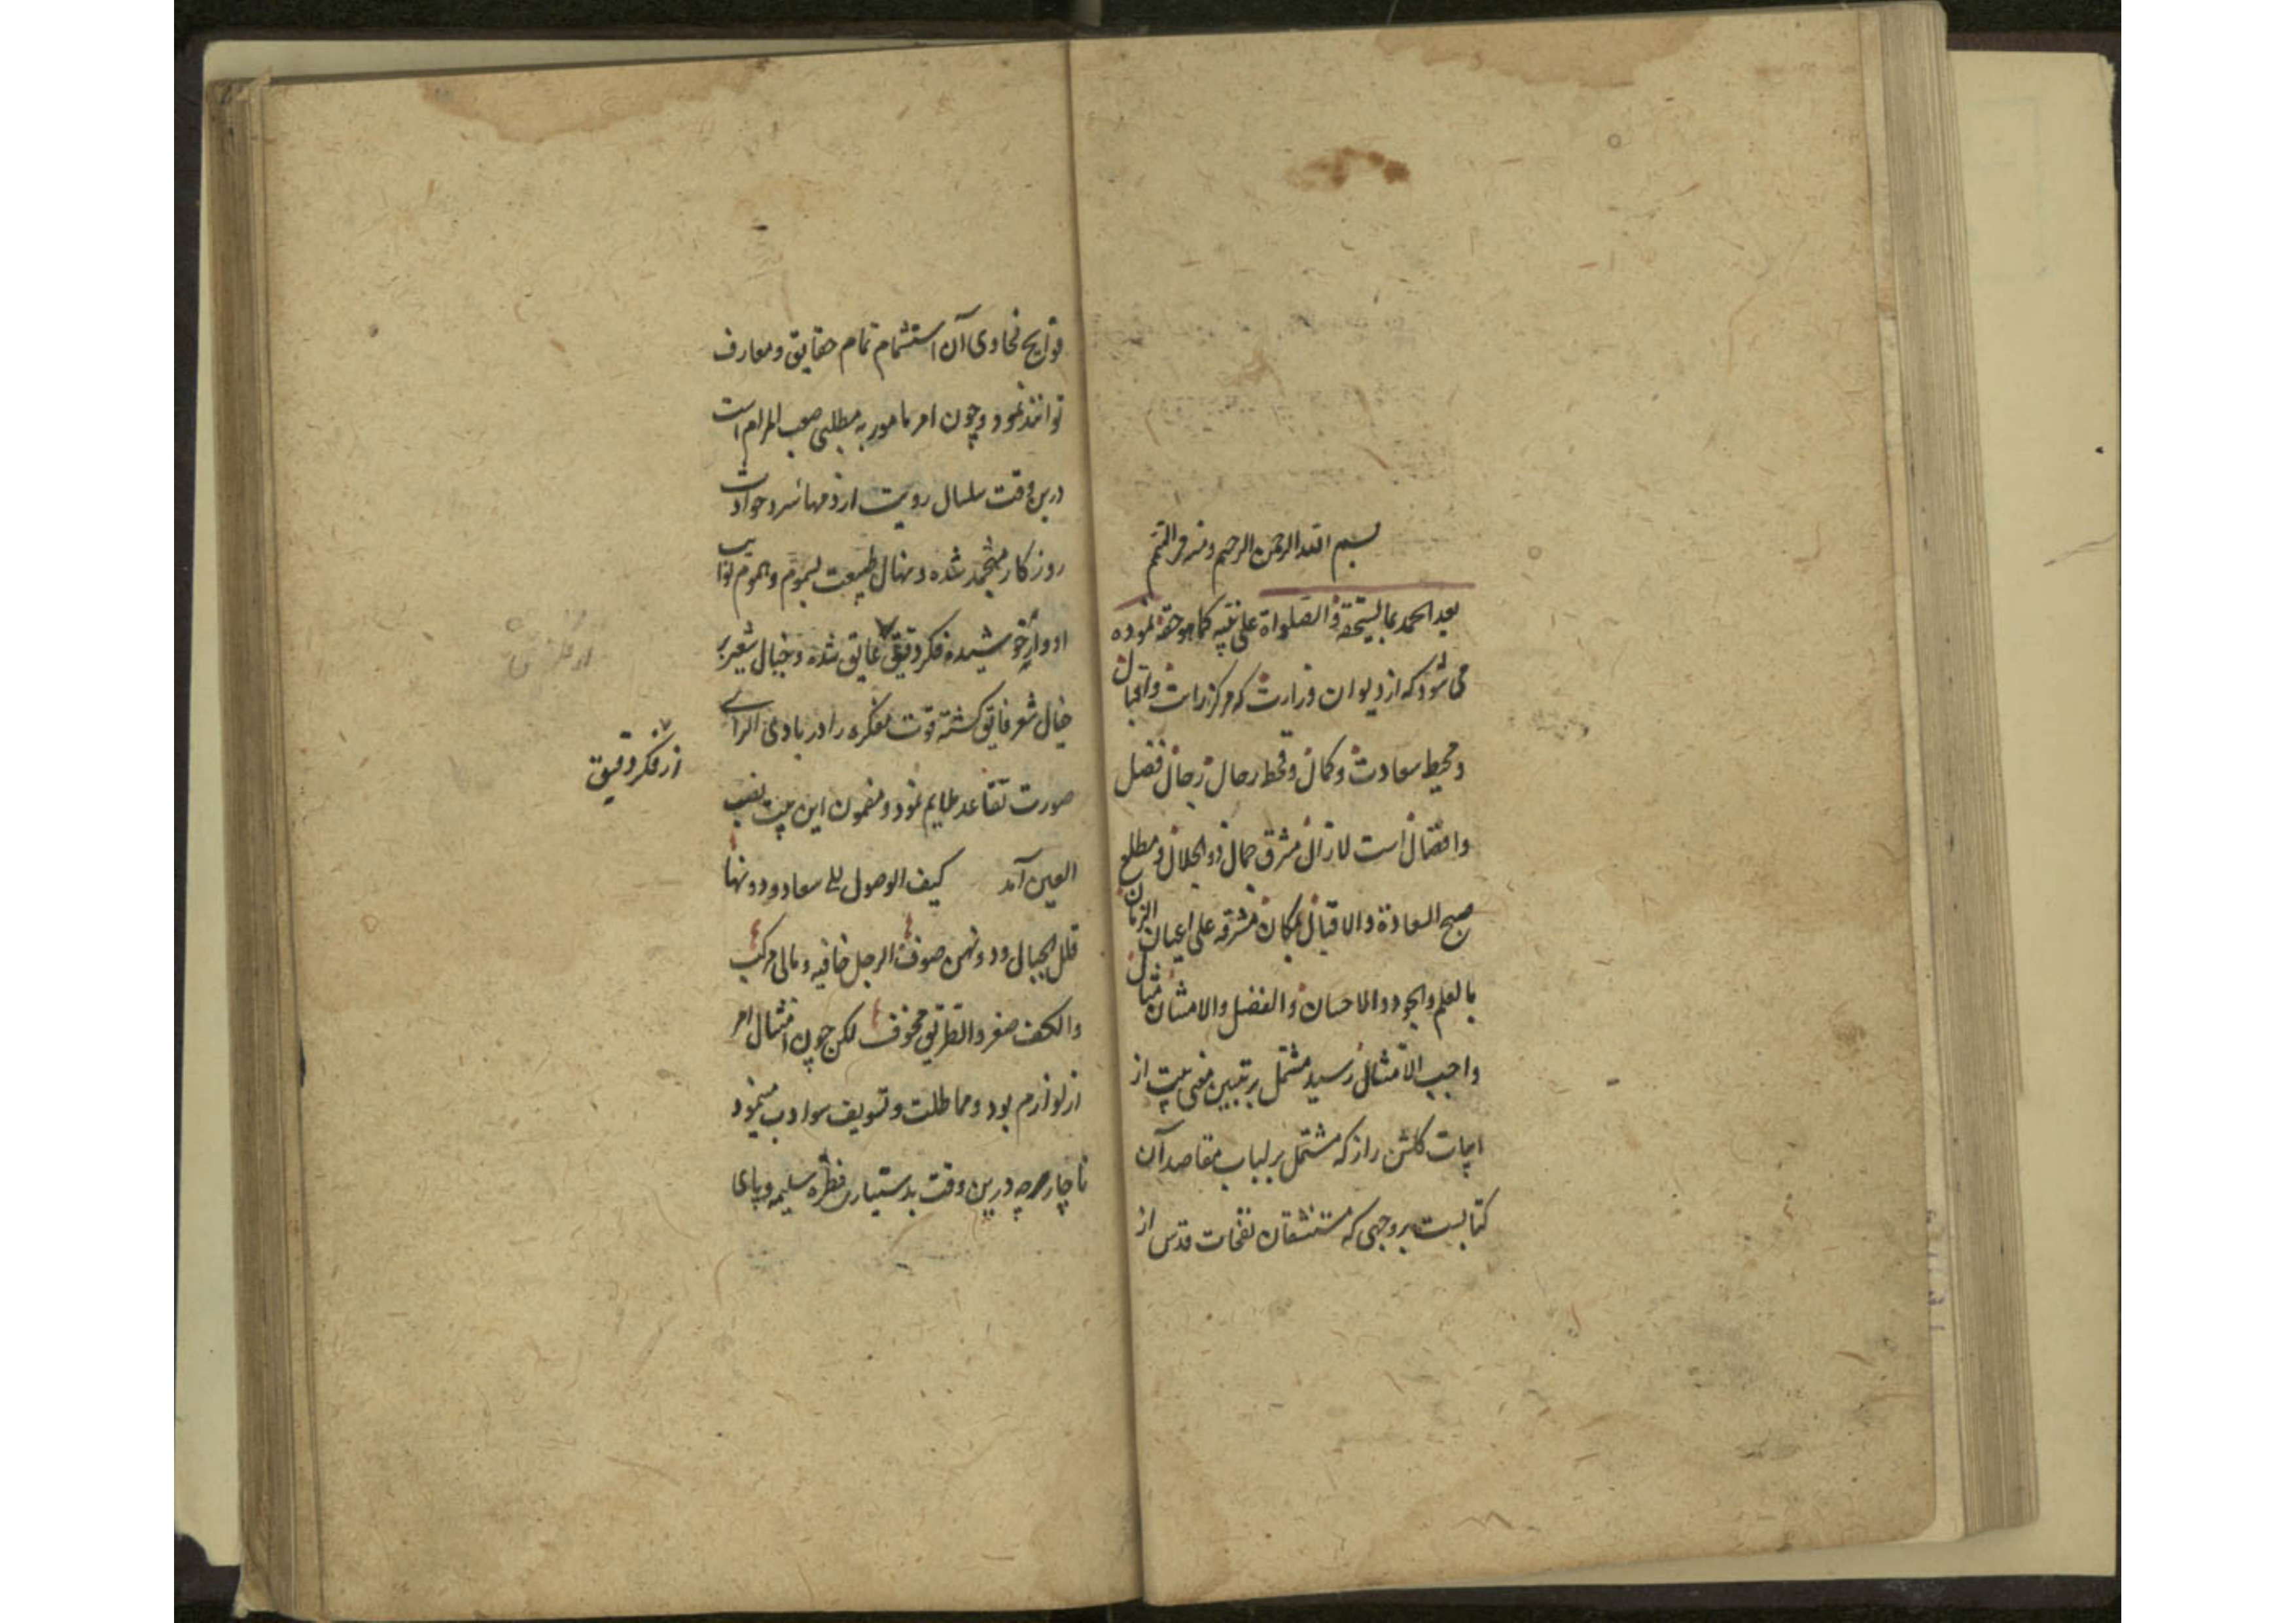 بسم الله الرحمن الرحیم ومنه التتمیم
بعد الحمد بما یستحقه والصلواة علی نبیه کما هو حقه نموده
می شود که از دیوان وزارت که مرکز رایت واقبال
ومحیط سعادت وکمال ومحط رحال رجال فضل
وافضال است لازال مشرق جمال ذو الجلال ومطلع
صبح السعادة والاقبال مشرقه علی اعیان الزمان
بالعلم والجود والاحسان والفضل والامتنان مثال
واجب الامتثال رسید مشتمل بر تبیین معنی بیت از
ابیات گلشن راز که مشتمل بر لباب مقاصد آن
کتابست بر وجهی که مستنشقان نفحات قدس از
فوایح فحاوی آن استشمام تمام حقایق ومعارف
توانند نمود وچون امر مامور به مطلبی صعب المرام است
درین وقت سلسال رویت از زمهائر سرد حوادث
روزکار منجمد شده ونهال طبیعت بسموم وهموم نوایب
ادوار خوشیده فکر دقیق عایق شده وخیال شعیر بر
خیال شعر فایق کشته قوت مفکره را در بادی الرای
صورت تقاعد ملایم نمود ومضمون این بیت نصب
العین آمد کیف الوصول الی سعاد ودونها
قلل الجبال ودونهن حتوف الرجل حافیه ومالی مرکب
والکف صفر والطریق مخوف لکن چون امتثال امر
از لوازم بود ومماطلت وتسویف سوء ادب مینمود
ناچار هرچه درین وقت بدستیاری فطره سلیمه وپای
از فکر دقیق